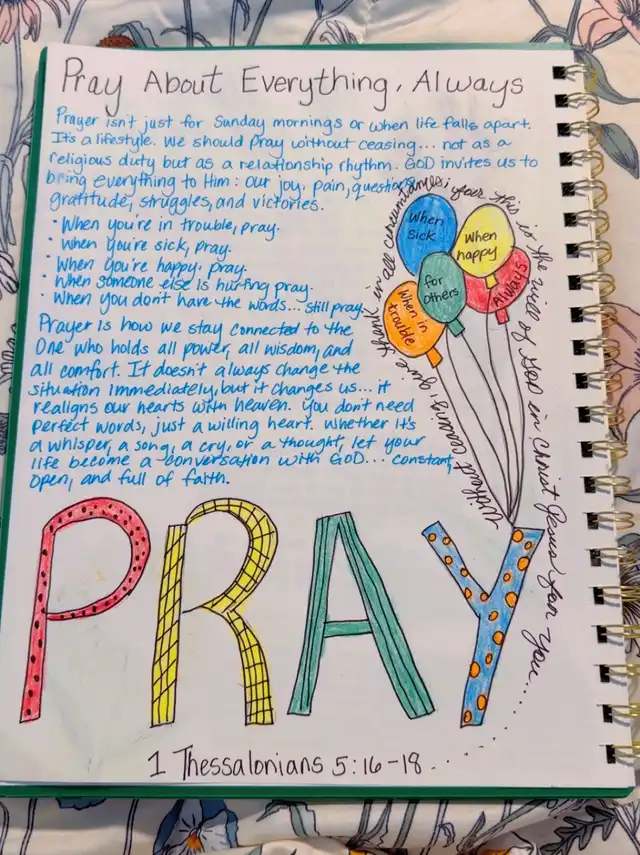 Pray About Everything, Always
Prayer isn't just for Sunday mornings or when life falls apart.
It's a lifestyle. We should pray without ceasing... not as a
religious duty but as a relationship rhythm. GOD invites us to
bring everything to Him: our joy, pain, questions,
gratitude, struggles, and victories.
· When you're in trouble, pray.
· When you're sick, pray.
· When you're happy, pray.
· When someone else is hurting pray.
· When you don't have the words... still pray.
Prayer is how we stay connected to the
One who holds all power, all wisdom, and
all comfort. It doesn't always change the
situation immediately, but it changes us... it
realigns our hearts with heaven. You don't need
perfect words, just a willing heart. Whether it's
a whisper, a song, a cry, or a thought, let your
life become a conversation with GOD... constant,
open, and full of faith.
When sick
When happy
for others
Always
When in trouble
without ceasing; give thank in all circumstances; for this is the will of God in Christ Jesus for you...
PRAY
1 Thessalonians 5:16-18...